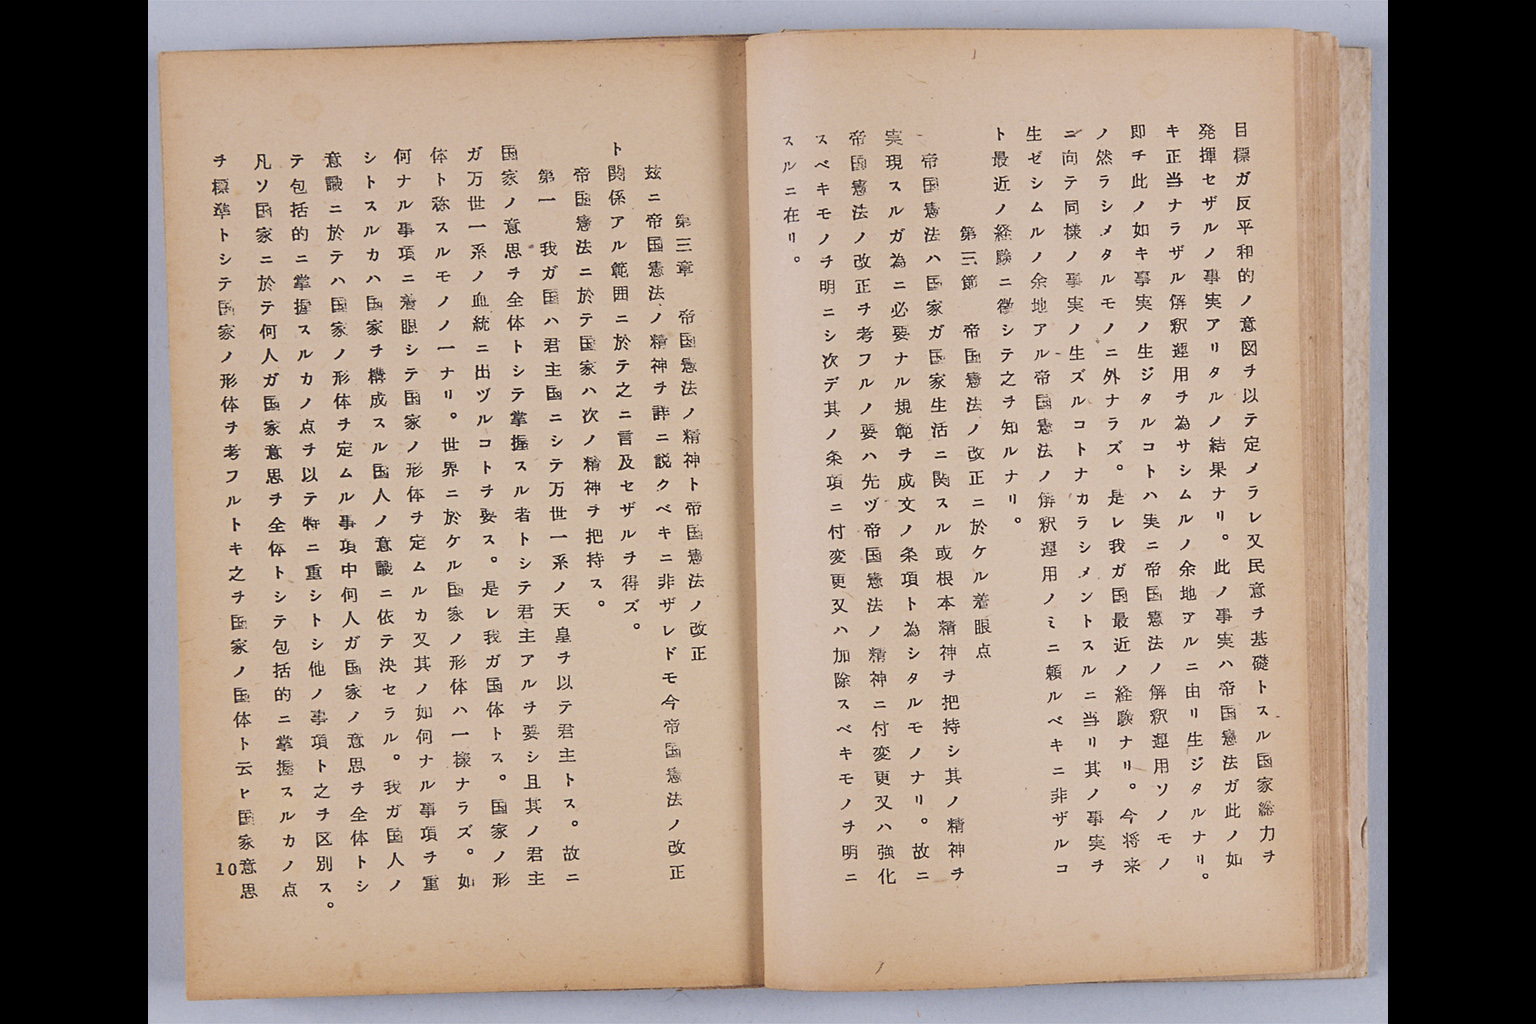 目標ガ反平和的ノ意図ヲ以テ定メラレ又民意ヲ基礎トスル国家総力ヲ
発揮セザルノ事実アリタルノ結果ナリ。此ノ事実ハ帝国憲法ガ此ノ如
キ正当ナラザル解釈運用ヲ為サシムルノ余地アルニ由リ生ジタルナリ。
即チ此ノ如キ事実ノ生ジタルコトハ実ニ帝国憲法ノ解釈運用ソノモノ
ノ然ラシメタルモノニ外ナラズ。是レ我ガ国最近ノ経験ナリ。今将来
ニ向テ同様ノ事実ノ生ズルコトナカラシメントスルニ当リ其ノ事実ヲ
生ゼシムルノ余地アル帝国憲法ノ解釈運用ノミニ頼ルベキニ非ザルコ
ト最近ノ経験ニ徴シテ之ヲ知ルナリ。
第三節 帝国憲法ノ改正ニ於ケル着眼点
帝国憲法ハ国家ガ国家生活ニ関スル或根本精神ヲ把持シ其ノ精神ヲ
実現スルガ為ニ必要ナル規範ヲ成文ノ条項ト為シタルモノナリ。故ニ
帝国憲法ノ改正ヲ考フルノ要ハ先ヅ帝国憲法ノ精神ニ付変更又ハ強化
スベキモノヲ明ニシ次デ其ノ条項ニ付変更又ハ加除スベキモノヲ明ニ
スルニ在リ。
第三章 帝国憲法ノ精神ト帝国憲法ノ改正
茲ニ帝国憲法ノ精神ヲ詳ニ説クベキニ非ザレドモ今帝国憲法ノ改正
ト関係アル範囲ニ於テ之ニ言及セザルヲ得ズ。
帝国憲法ニ於テ国家ハ次ノ精神ヲ把持ス。
第一 我ガ国ハ君主国ニシテ万世一系ノ天皇ヲ以テ君主トス。故ニ
国家ノ意思ヲ全体トシテ掌握スル者トシテ君主アルヲ要シ且其ノ君主
ガ万世一系ノ血統ニ出ヅルコトヲ要ス。是レ我ガ国体トス。国家ノ形
体ト称スルモノノ一ナリ。世界ニ於ケル国家ノ形体ハ一様ナラズ。如
何ナル事項ニ着眼シテ国家ノ形体ヲ定ムルカ又其ノ如何ナル事項ヲ重
シトスルカハ国家ヲ構成スル国人ノ意識ニ依テ決セラル。我ガ国人ノ
意識ニ於テハ国家ノ形体ヲ定ムル事項中何人ガ国家ノ意思ヲ全体トシ
テ包括的ニ掌握スルカノ点ヲ以テ特ニ重シトシ他ノ事項ト之ヲ区別ス。
凡ソ国家ニ於テ何人ガ国家意思ヲ全体トシテ包括的ニ掌握スルカノ点
ヲ標準トシテ国家ノ形体ヲ考フルトキ之ヲ国家ノ国体ト云ヒ国家意思
10